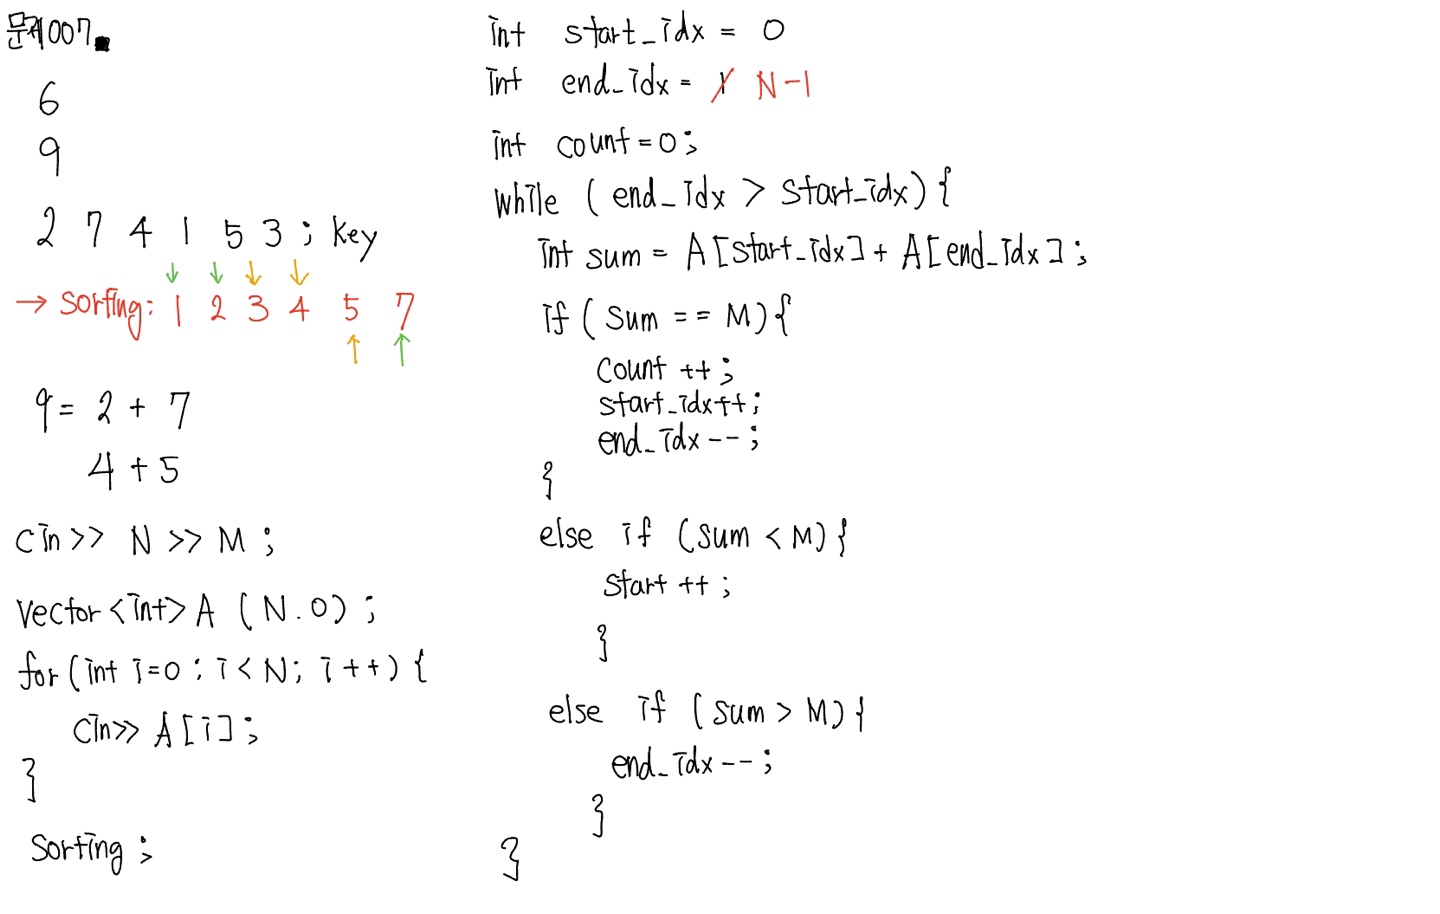 문제007.
6
9
2 7 4 1 5 3 ; key
↓ ↓ ↓ ↓
→ Sorting: 1 2 3 4 5 7
↑ ↑
9 = 2 + 7
4 + 5
cin >> N >> M ;
vector<int> A (N.0) ;
for (int i=0 ; i < N; i ++) {
cin >> A [i] ;
}
Sorting ;
int start_idx = 0
int end_idx = 1 N-1
int count = 0 ;
while ( end_idx > start_idx) {
int sum = A [start_idx] + A [end_idx] ;
if ( sum == M) {
count ++ ;
start_idx++ ;
end_idx -- ;
}
else if (sum < M) {
start ++ ;
}
else if (sum > M) {
end_idx -- ;
}
}